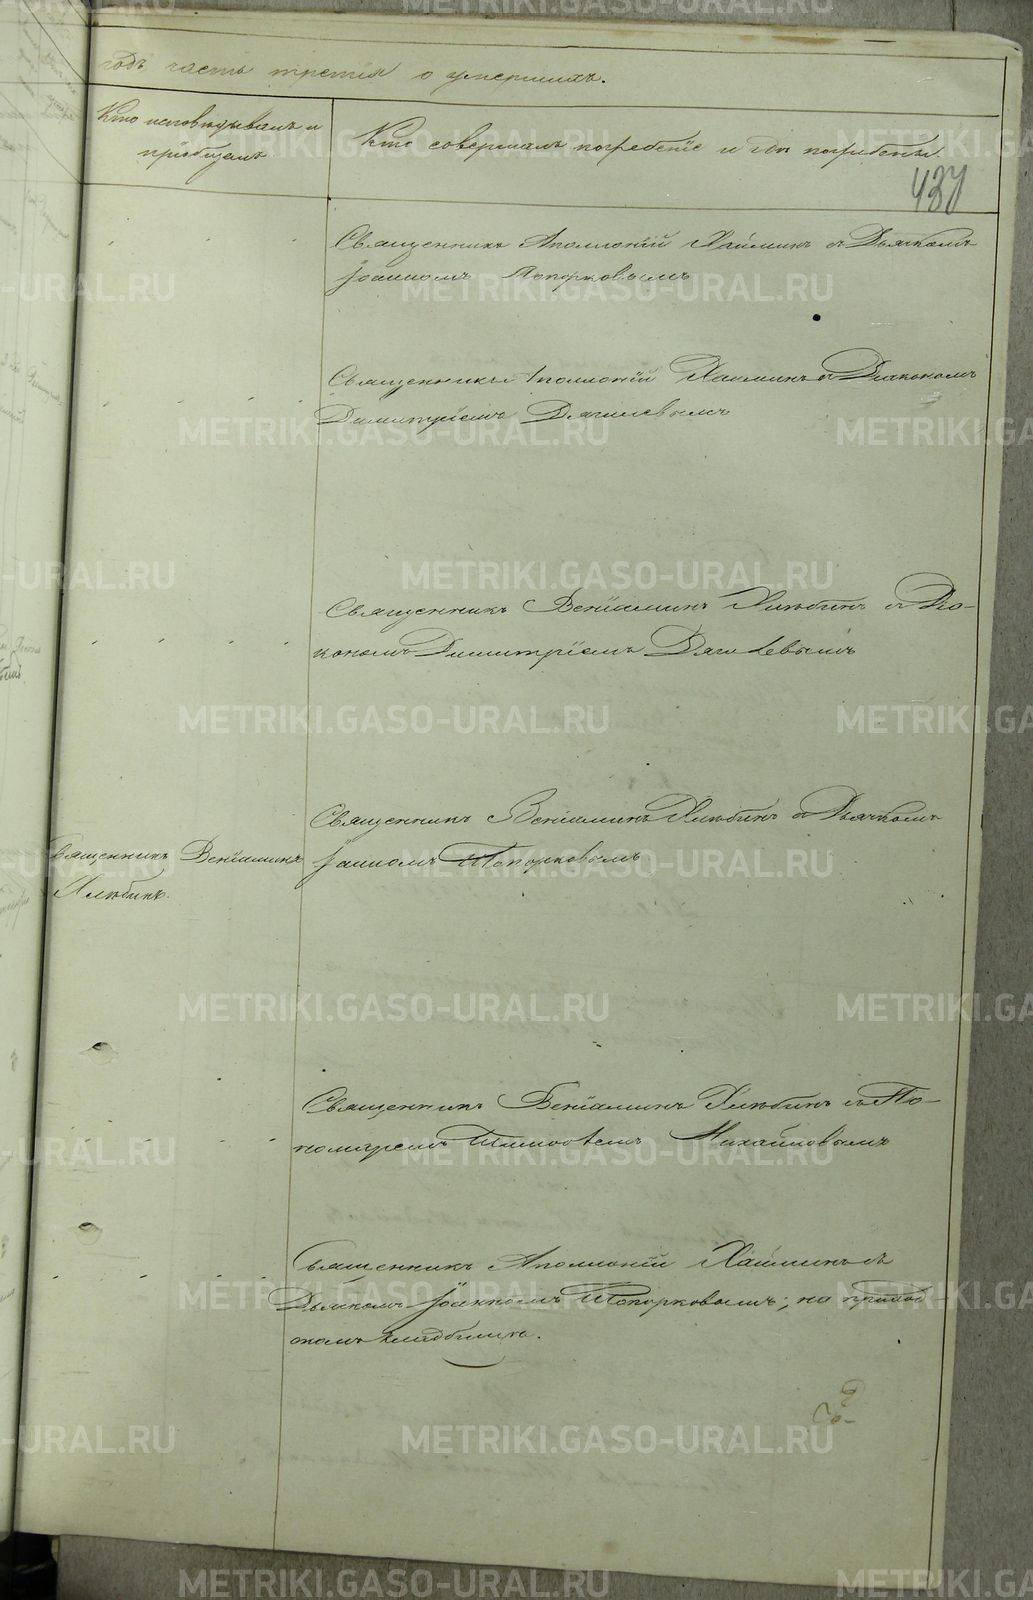 годъ часть третія о умершихъ.
Кто исповѣдывалъ и
пріобщалъ
Кто совершалъ погребеніе и гдѣ погребены.
437
Священникъ Аполлоній Хлѣминъ съ Дьячкомъ
Іоанномъ Топорковымъ
Священникъ Аполлоній съ Діакономъ
Димитріемъ Дягилевымъ
Священникъ Веніаминъ Хлюбинъ съ Діа-
кономъ Димитріемъ Дягилевымъ
Священникъ Веніаминъ Хлюбинъ съ Дьячкомъ
Іоанномъ Топорковымъ
Священникъ Веніаминъ
Хлюбинъ.
Священникъ Веніаминъ Хлюбинъ съ По-
номаремъ Михайловымъ
Священникъ Аполлоній съ
Дьячкомъ Іоанномъ Топорковымъ; на приход-
скомъ кладбищѣ.
METRIKI.GASO-URAL.RU